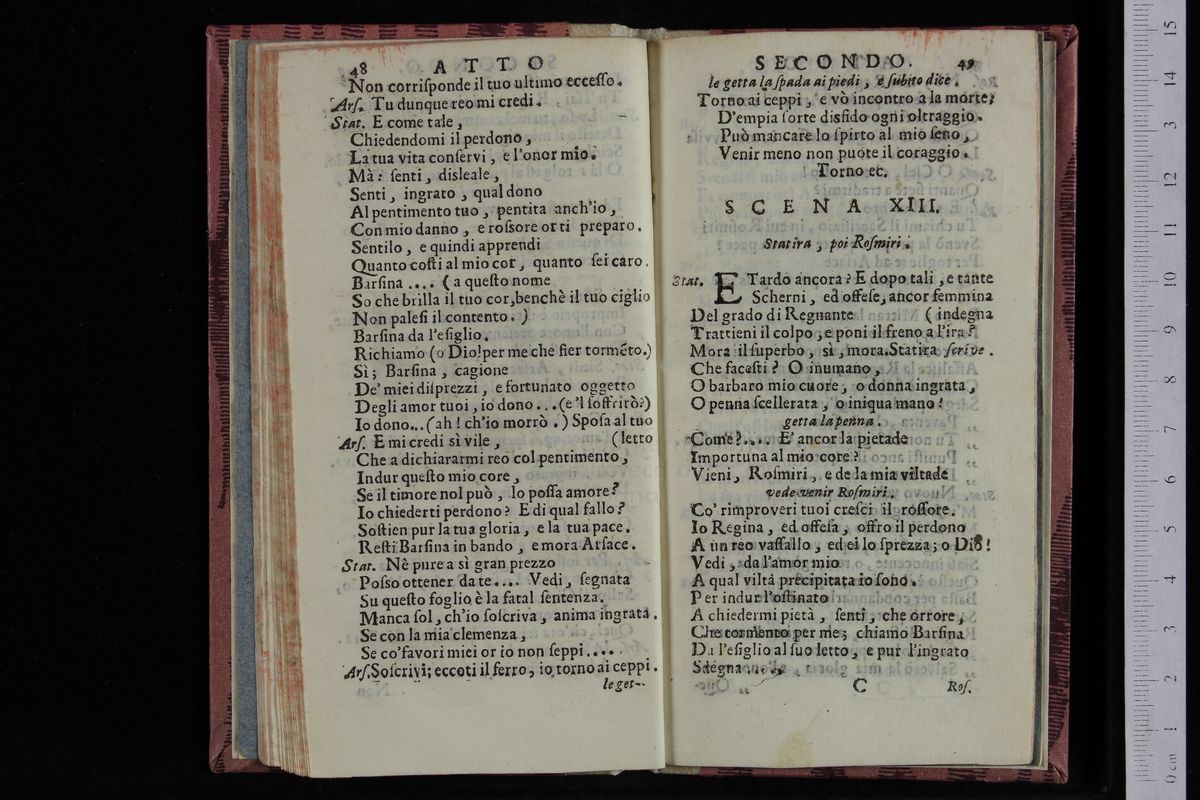 48 ATTO
Non corriſponde il tuo ultimo ecceſſo.
Arſ. Tu dunque reo mi credi.
Stat. E come tale,
Chiedendomi il perdono,
La tua vita conſervi, e l'onor mio.
Mà: ſenti, disleale,
Senti, ingrato, qual dono
Al pentimento tuo, pentita anch'io,
Con mio danno, e roſsore or ti preparo.
Sentilo, e quindi apprendi
Quanto coſti al mio cor, quanto ſei caro.
Barſina .... (a queſto nome
So che brilla il tuo cor, benchè il tuo ciglio
Non paleſi il contento.)
Barſina da l'eſiglio.
Richiamo (o Dio! per me che fier tormẽto.)
Sì; Barſina, cagione
De' miei diſprezzi, e fortunato oggetto
Degli amor tuoi, io dono...(e 'l ſoffrirò?)
Io dono...(ah! ch'io morrò.) Spoſa al tuo
Arſ. E mi credi sì vile, (letto
Che a dichiararmi reo col pentimento,
Indur queſto mio core,
Se il timore nol può, lo poſſa amore?
Io chiederti perdono? E di qual fallo?
Soſtien pur la tua gloria, e la tua pace.
Reſti Barſina in bando, e mora Arſace.
Stat. Nè pure a sì gran prezzo
Poſso ottener da te.... Vedi, ſegnata
Su queſto foglio è la fatal ſentenza.
Manca ſol, ch'io ſoſcriva, anima ingrata.
Se con la mia clemenza,
Se co' favori miei or io non ſeppi....
Arſ. Soſcrivi; eccoti il ferro, io torno ai ceppi.
le get-
SECONDO. 49
le getta la ſpada ai piedi, e ſubito dice.
Torno ai ceppi, e vò incontro a la morte;
D'empia ſorte disfido ogni oltraggio.
Può mancare lo ſpirto al mio ſeno,
Venir meno non puote il coraggio.
Torno ec.
SCENA XIII.
Statira, poi Roſmiri.
Stat. E Tardo ancora? E dopo tali, e tante
Scherni, ed offeſe, ancor femmina
Del grado di Regnante (indegna
Trattieni il colpo, e poni il freno a l'ira?
Mora il ſuperbo, sì, mora. Statira ſcrive.
Che faceſti? O inumano,
O barbaro mio cuore, o donna ingrata,
O penna ſcellerata, o iniqua mano!
getta la penna.
Come?.... E' ancor la pietade
Importuna al mio core?
Vieni, Roſmiri, e de la mia viltade
vede venir Roſmiri.
Co' rimproveri tuoi creſci il roſſore.
Io Regina, ed offeſa, offro il perdono
A un reo vaſſallo, ed ei lo ſprezza; o Dio!
Vedi, da l'amor mio
A qual viltà precipitata io ſono.
Per indur l'oſtinato
A chiedermi pietà, ſenti, che orrore,
Che tormento per me; chiamo Barſina
Da l'eſiglio al ſuo letto, e pur l'ingrato
Sdegna
C Roſ.